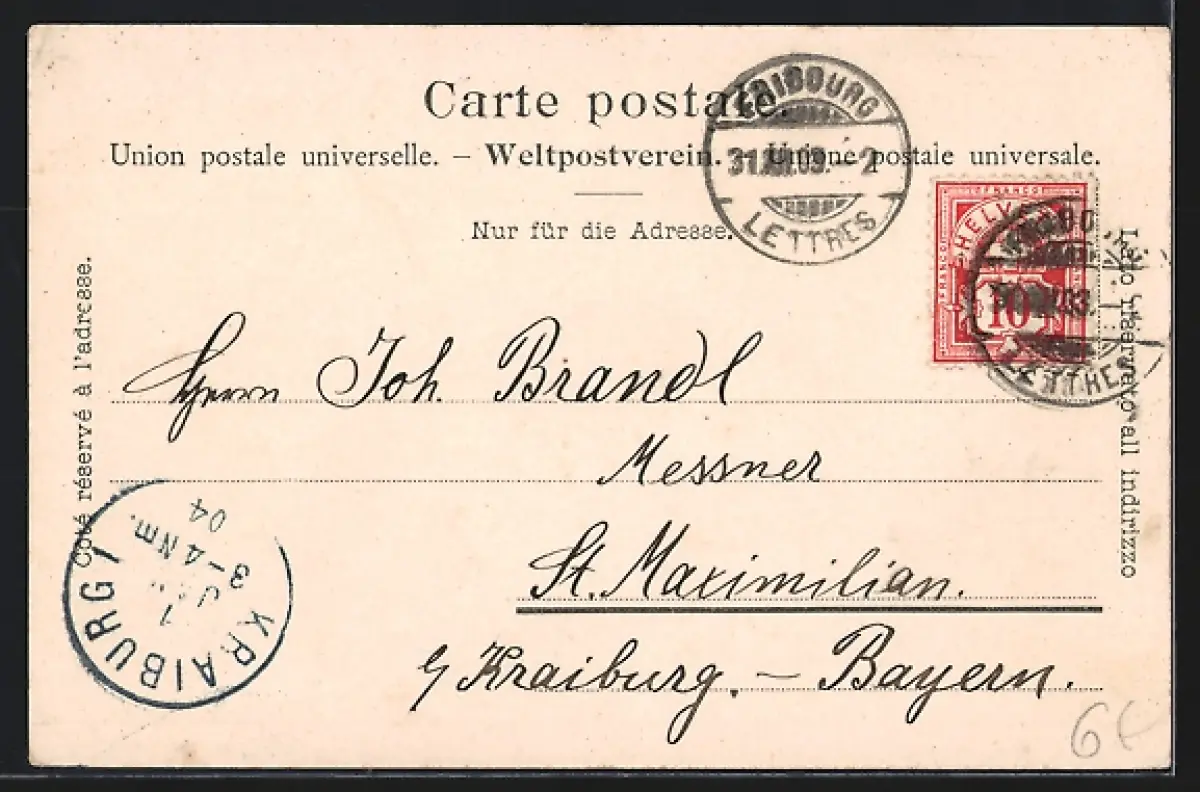 Carte postale.
Union postale universelle. – Weltpostverein. – Unione postale universale.
Nur für die Adresse.
FRIBOURG
31.XII.03.–2
LETTRES
FRANCO
HELVETIA
FRANCO
10
LETTRES
Côté réservé à l'adresse.
Lato riservato all indirizzo
Herrn Joh. Brandl
Messner
St. Maximilian.
b/ Kraiburg. – Bayern.
KRAIBURG I
1
3–4 Nm.
04
6€